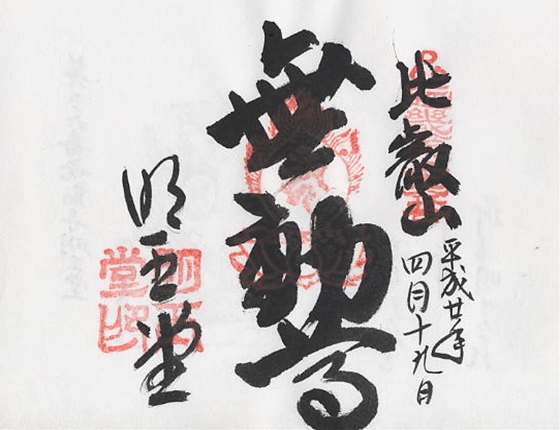 比叡山
平成廿年
四月十九日
無動尊
明王堂
明王堂印